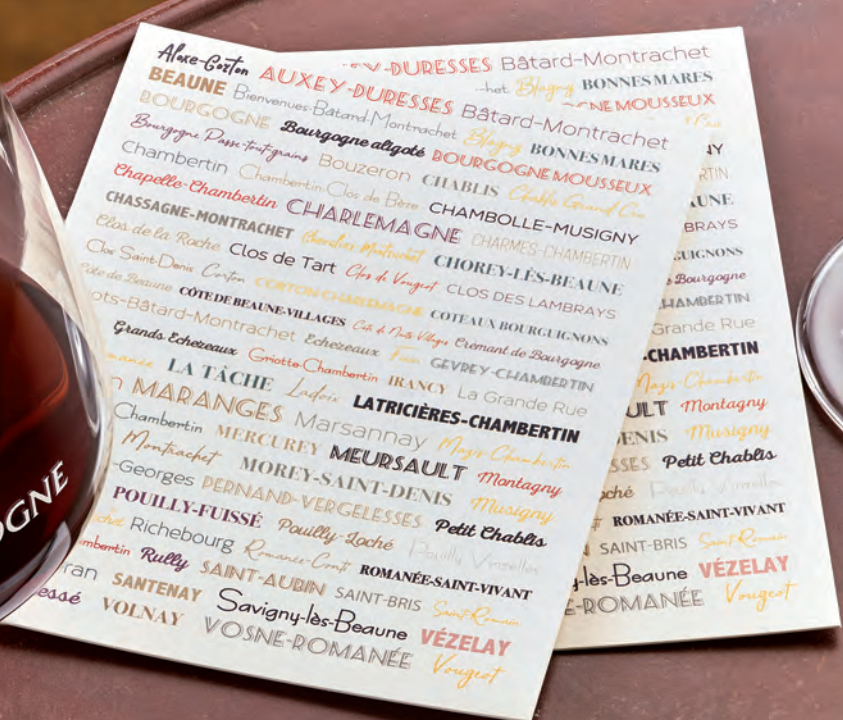 Aloxe-Corton AUXEY-DURESSES Bâtard-Montrachet
BEAUNE Bienvenues-Bâtard-Montrachet Blagny BONNES MARES
BOURGOGNE Bourgogne aligoté BOURGOGNE MOUSSEUX
Bourgogne Passe-tout-grains Bouzeron CHABLIS Chablis Grand Cru
Chambertin Chambertin-Clos de Bèze CHAMBOLLE-MUSIGNY
Chapelle-Chambertin CHARLEMAGNE CHARMES-CHAMBERTIN
CHASSAGNE-MONTRACHET Chevalier-Montrachet CHOREY-LÈS-BEAUNE
Clos de la Roche Clos de Tart Clos de Vougeot CLOS DES LAMBRAYS
Clos Saint-Denis Corton CORTON-CHARLEMAGNE COTEAUX BOURGUIGNONS
Côte de Beaune CÔTE DE BEAUNE-VILLAGES Côte de Nuits-Villages Crémant de Bourgogne
ots-Bâtard-Montrachet Echezeaux Fixin GEVREY-CHAMBERTIN
Grands Echezeaux Griotte-Chambertin IRANCY La Grande Rue
omanée LA TÂCHE Ladoix LATRICIÈRES-CHAMBERTIN
n MARANGES Marsannay Mazis-Chambertin
Chambertin MERCUREY MEURSAULT Montagny
Montrachet MOREY-SAINT-DENIS Musigny
-Georges PERNAND-VERGELESSES Petit Chablis
POUILLY-FUISSÉ Pouilly-Loché Pouilly-Vinzelles
chet Richebourg Romanée-Conti ROMANÉE-SAINT-VIVANT
mbertin Rully SAINT-AUBIN SAINT-BRIS Saint-Romain
ran SANTENAY Savigny-lès-Beaune VÉZELAY
essé VOLNAY VOSNE-ROMANÉE Vougeot
EY-DURESSES Bâtard-Montrachet
het Blagny BONNES MARES
GNE MOUSSEUX
Cru
NY
RTIN
AUNE
BRAYS
UIGNONS
Bourgogne
HAMBERTIN
Grande Rue
-CHAMBERTIN
Mazis-Chambertin
ULT Montagny
ENIS Musigny
SSES Petit Chablis
oché Pouilly-Vinzelles
ROMANÉE-SAINT-VIVANT
SAINT-BRIS Saint-Romain
y-lès-Beaune VÉZELAY
E-ROMANÉE Vougeot
OGNE